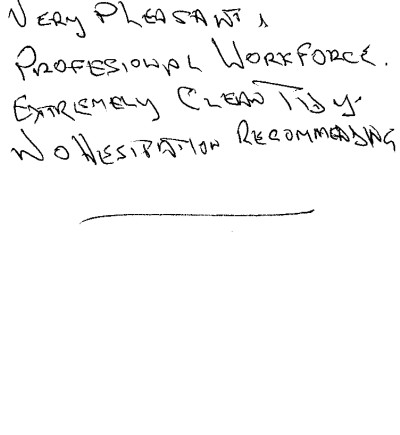 VERY PLEASANT &
PROFESIONAL WORKFORCE.
EXTREMELY CLEAN TIDY.
NO HESITATION RECOMMENDING